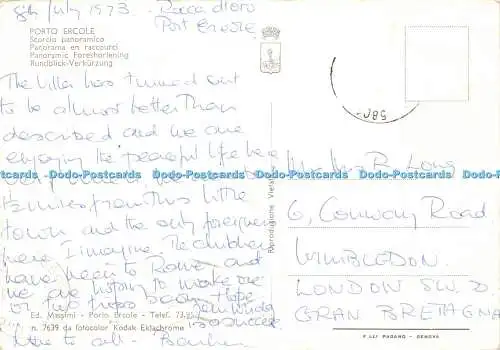 8th July 1973 Rocca d'oro
Port Ercole
PORTO ERCOLE
Scorcio panoramico
Panorama en raccourci
Panoramic Foreshortening
Rundblick-Verkürzung
The Villa has turned out
to be almost better than
described and we are
enjoying the peaceful life here
We are
miles from this little
town and the only foreigners
here I imagine. The children
have been to Rome and
we are hoping to make one
or two trips soon. Hope
Ed. Massimi - Porto Ercole - Telef. 73.95
n. 7639 da fotocolor Kodak Ektachrome
to all -
Riproduzione Vietata
Mrs R. Long
6, Conway Road
WIMBLEDON.
LONDON S.W. 20
GRAN BRETAGNA
F.LLI PAGANO - GENOVA
Dodo-Postcards Dodo-Postcards Dodo-Postcards Dodo-Postcards Dodo-Postcards